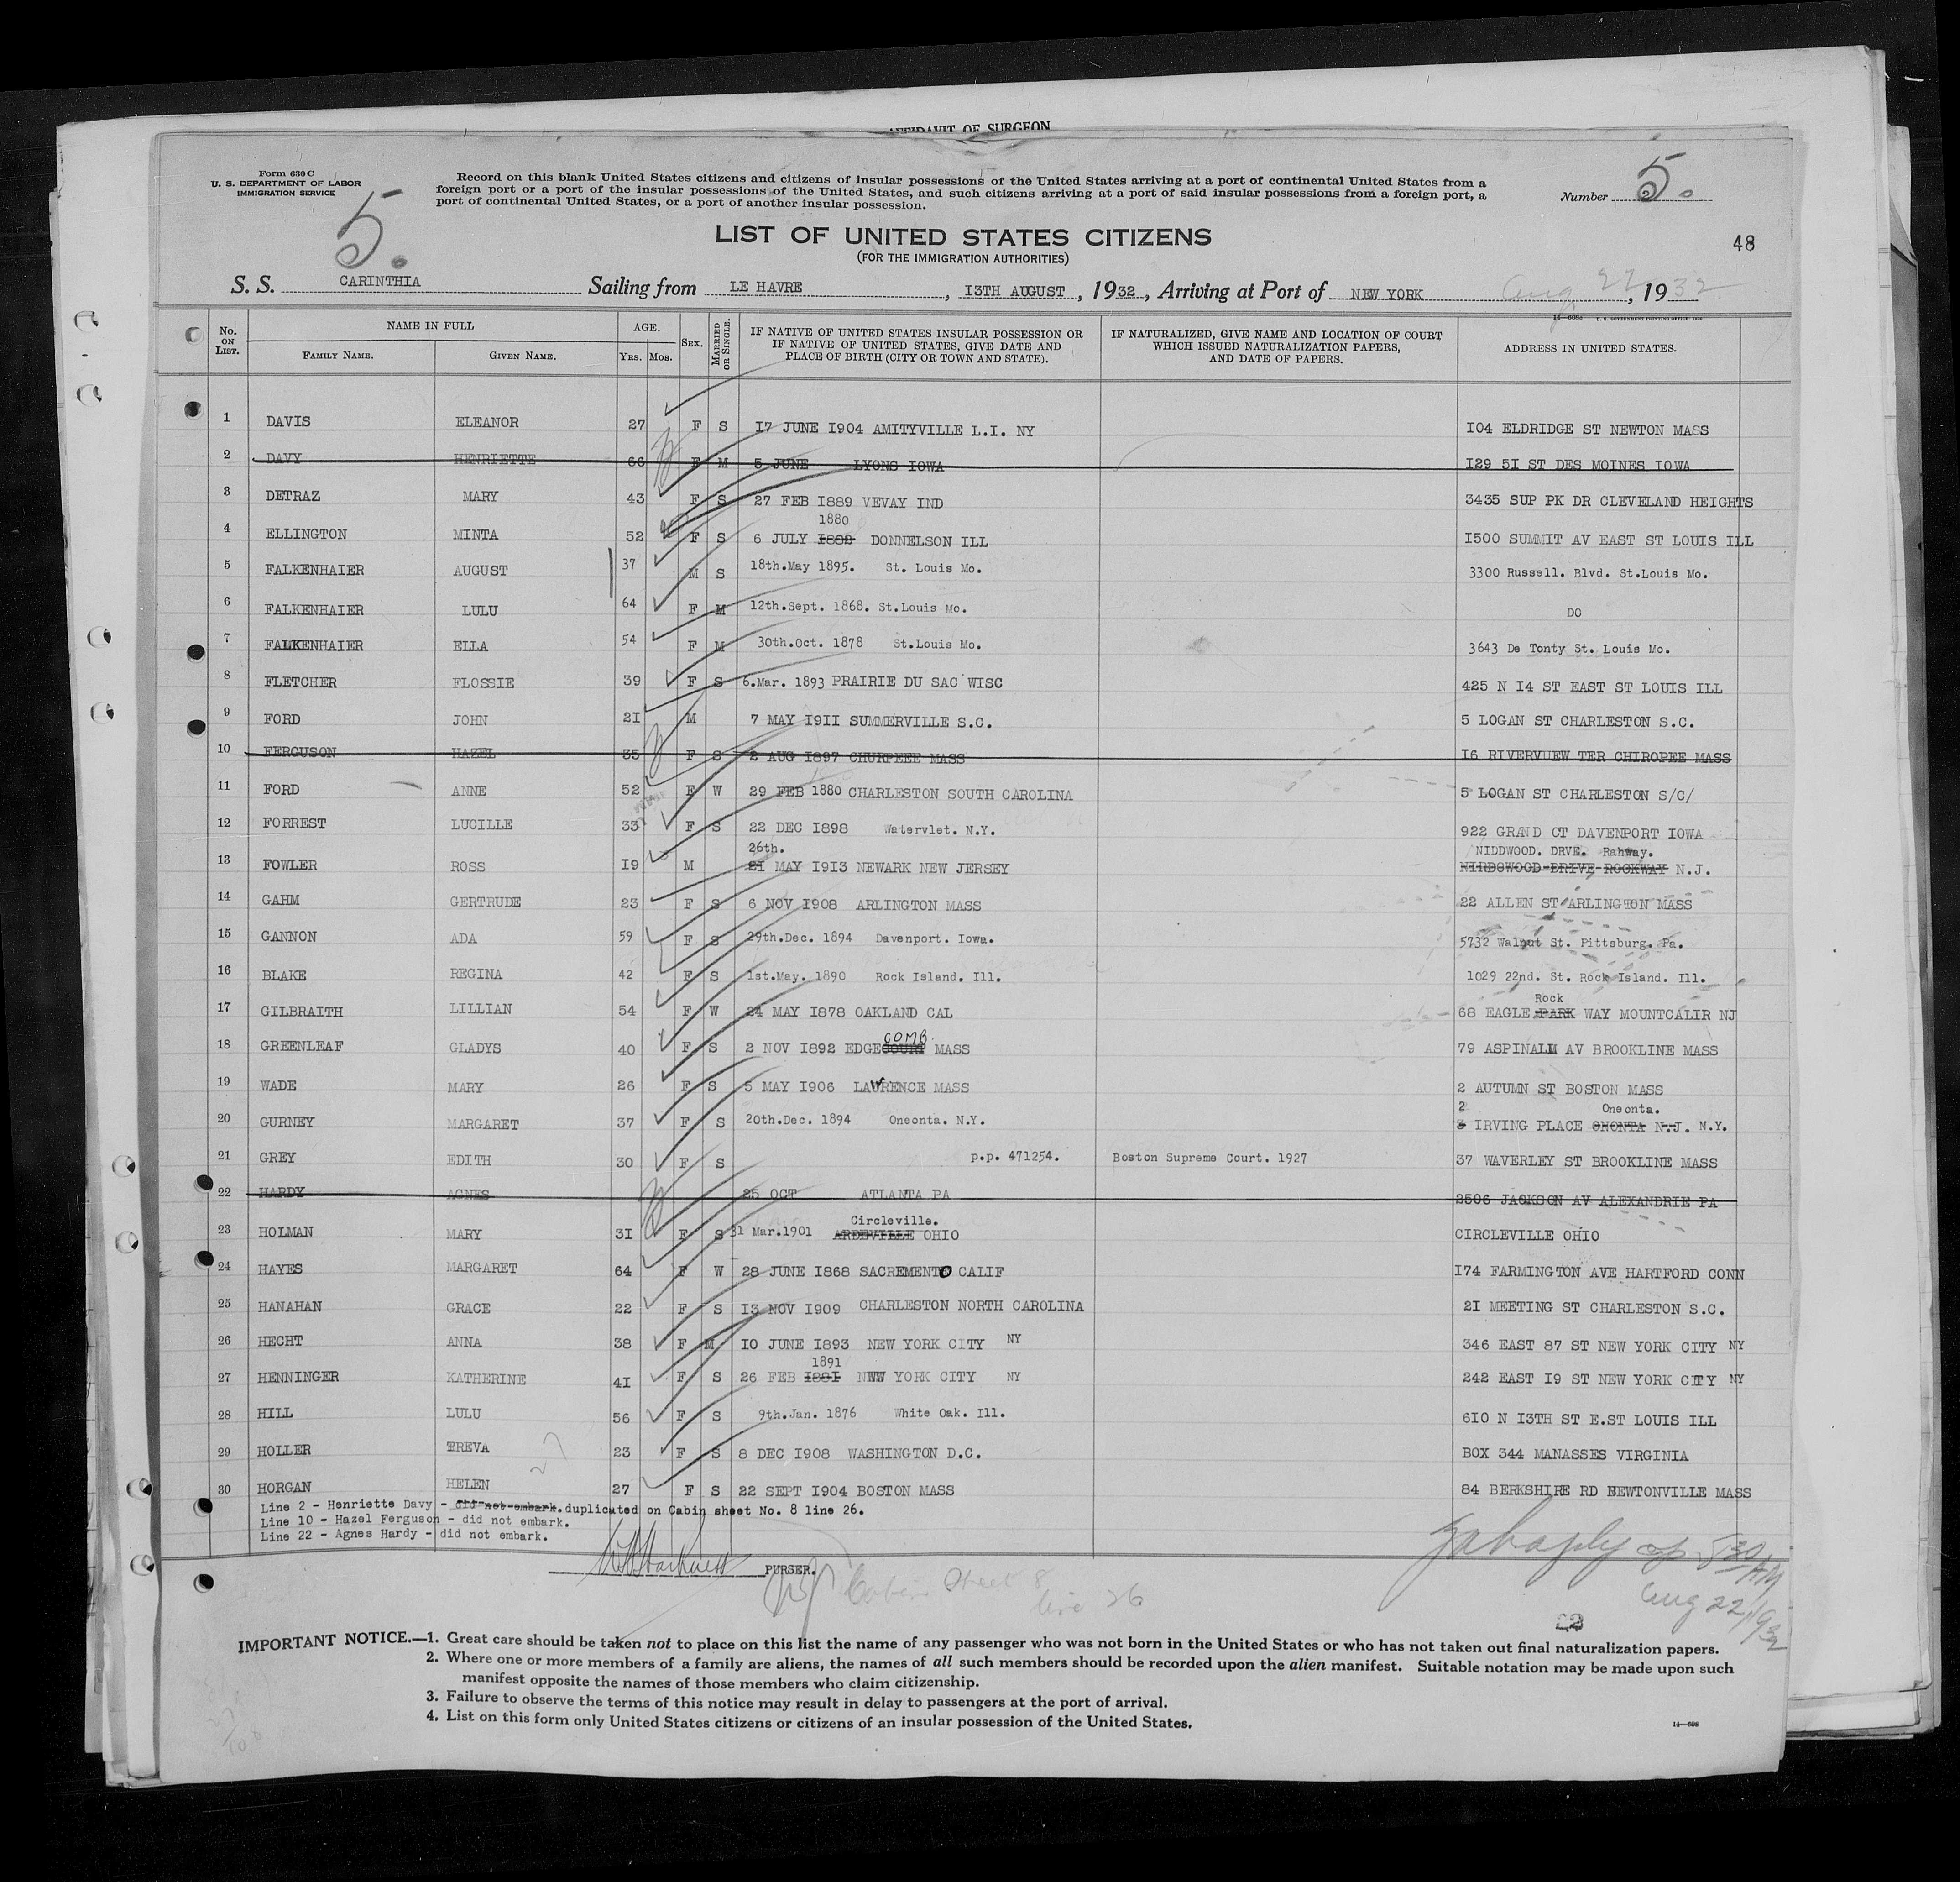 AFFIDAVIT OF SURGEON
Form 630 C
U. S. DEPARTMENT OF LABOR
IMMIGRATION SERVICE
5.
Record on this blank United States citizens and citizens of insular possessions of the United States arriving at a port of continental United States from a
foreign port or a port of the insular possessions of the United States, and such citizens arriving at a port of said insular possessions from a foreign port, a
port of continental United States, or a port of another insular possession.
Number 5.
LIST OF UNITED STATES CITIZENS
(FOR THE IMMIGRATION AUTHORITIES)
48
S. S. CARINTHIA Sailing from LE HAVRE, 13TH AUGUST, 1932, Arriving at Port of NEW YORK Aug 22, 1932
No. ON LIST. NAME IN FULL FAMILY NAME. GIVEN NAME. AGE. YRS. MOS. SEX. MARRIED OR SINGLE. IF NATIVE OF UNITED STATES INSULAR POSSESSION OR IF NATIVE OF UNITED STATES, GIVE DATE AND PLACE OF BIRTH (CITY OR TOWN AND STATE). IF NATURALIZED, GIVE NAME AND LOCATION OF COURT WHICH ISSUED NATURALIZATION PAPERS, AND DATE OF PAPERS. ADDRESS IN UNITED STATES.
1 DAVIS ELEANOR 27 F S I7 JUNE I904 AMITYVILLE L.I. NY I04 ELDRIDGE ST NEWTON MASS
2 DAVY HENRIETTE 66 F M 5 JUNE LYONS IOWA I29 5I ST DES MOINES IOWA
3 DETRAZ MARY 43 F S 27 FEB I889 VEVAY IND 3435 SUP PK DR CLEVELAND HEIGHTS
1880
4 ELLINGTON MINTA 52 F S 6 JULY DONNELSON ILL I500 SUMMIT AV EAST ST LOUIS ILL
5 FALKENHAIER AUGUST 37 M S 18th.May 1895. St. Louis Mo. 3300 Russell. Blvd. St.Louis Mo.
6 FALKENHAIER LULU 64 F M 12th.Sept. 1868. St.Louis Mo. DO
7 FALKENHAIER ELLA 54 F M 30th.Oct. 1878 St.Louis Mo. 3643 De Tonty St. Louis Mo.
8 FLETCHER FLOSSIE 39 F S 6.Mar. 1893 PRAIRIE DU SAC WISC 425 N I4 ST EAST ST LOUIS ILL
9 FORD JOHN 2I M 7 MAY I9II SUMMERVILLE S.C. 5 LOGAN ST CHARLESTON S.C.
10 FERGUSON HAZEL 35 F S 2 AUG I897 CHURPEEE MASS I6 RIVERVUEW TER CHIROPEE MASS
11 FORD ANNE 52 F W 29 FEB 1880 CHARLESTON SOUTH CAROLINA 5 LOGAN ST CHARLESTON S/C/
12 FORREST LUCILLE 33 F S 22 DEC I898 Watervlet. N.Y. 922 GRAND CT DAVENPORT IOWA
26th. NIDDWOOD. DRVE. Rahway.
13 FOWLER ROSS I9 M 2I MAY I913 NEWARK NEW JERSEY NIRDSWOOD DRIVE ROCKWAY N.J.
14 GAHM GERTRUDE 23 F S 6 NOV I908 ARLINGTON MASS 22 ALLEN ST ARLINGTON MASS
15 GANNON ADA 59 F S 29th.Dec. 1894 Davenport. Iowa. 5732 Walnut St. Pittsburg. Pa.
16 BLAKE REGINA 42 F S 1st.May. 1890 Rock Island. Ill. 1029 22nd. St. Rock Island. Ill.
Rock
17 GILBRAITH LILLIAN 54 F W 24 MAY I878 OAKLAND CAL 68 EAGLE PARK WAY MOUNTCALIR NJ
COMB
18 GREENLEAF GLADYS 40 F S 2 NOV I892 EDGECOURT MASS 79 ASPINALL AV BROOKLINE MASS
19 WADE MARY 26 F S 5 MAY I906 LAWRENCE MASS 2 AUTUMN ST BOSTON MASS
2 Oneonta.
20 GURNEY MARGARET 37 F S 20th.Dec. 1894 Oneonta. N.Y. 3 IRVING PLACE ONONTA N.J. N.Y.
21 GREY EDITH 30 F S p.p. 471254. Boston Supreme Court. 1927 37 WAVERLEY ST BROOKLINE MASS
22 HARDY AGNES 25 OCT ATLANTA PA 2506 JACKSON AV ALEXANDRIE PA
Circleville.
23 HOLMAN MARY 3I F S 31 Mar.1901 ARDEVILLE OHIO CIRCLEVILLE OHIO
24 HAYES MARGARET 64 F W 28 JUNE I868 SACREMENTO CALIF I74 FARMINGTON AVE HARTFORD CONN
25 HANAHAN GRACE 22 F S I3 NOV I909 CHARLESTON NORTH CAROLINA 2I MEETING ST CHARLESTON S.C.
26 HECHT ANNA 38 F M I0 JUNE I893 NEW YORK CITY NY 346 EAST 87 ST NEW YORK CITY NY
1891
27 HENNINGER KATHERINE 4I F S 26 FEB I88I NEW YORK CITY NY 242 EAST I9 ST NEW YORK CITY NY
28 HILL LULU 56 F S 9th.Jan. 1876 White Oak. Ill. 6I0 N I3TH ST E.ST LOUIS ILL
29 HOLLER TREVA 23 F S 8 DEC I908 WASHINGTON D.C. BOX 344 MANASSES VIRGINIA
30 HORGAN HELEN 27 F S 22 SEPT I904 BOSTON MASS 84 BERKSHIRE RD NEWTONVILLE MASS
Line 2 - Henriette Davy - did not embark. duplicated on Cabin sheet No. 8 line 26.
Line 10 - Hazel Ferguson - did not embark.
Line 22 - Agnes Hardy - did not embark.
PURSER.
Cabin Sheet 8
line 26
530 AM
Aug 22, 1932
IMPORTANT NOTICE.—1. Great care should be taken not to place on this list the name of any passenger who was not born in the United States or who has not taken out final naturalization papers.
2. Where one or more members of a family are aliens, the names of all such members should be recorded upon the alien manifest. Suitable notation may be made upon such
manifest opposite the names of those members who claim citizenship.
3. Failure to observe the terms of this notice may result in delay to passengers at the port of arrival.
4. List on this form only United States citizens or citizens of an insular possession of the United States.
14—608